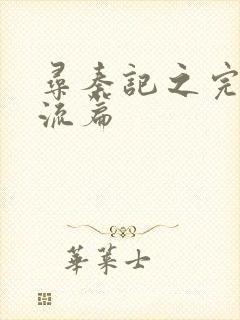 尋秦記之完
流篇
華萊士